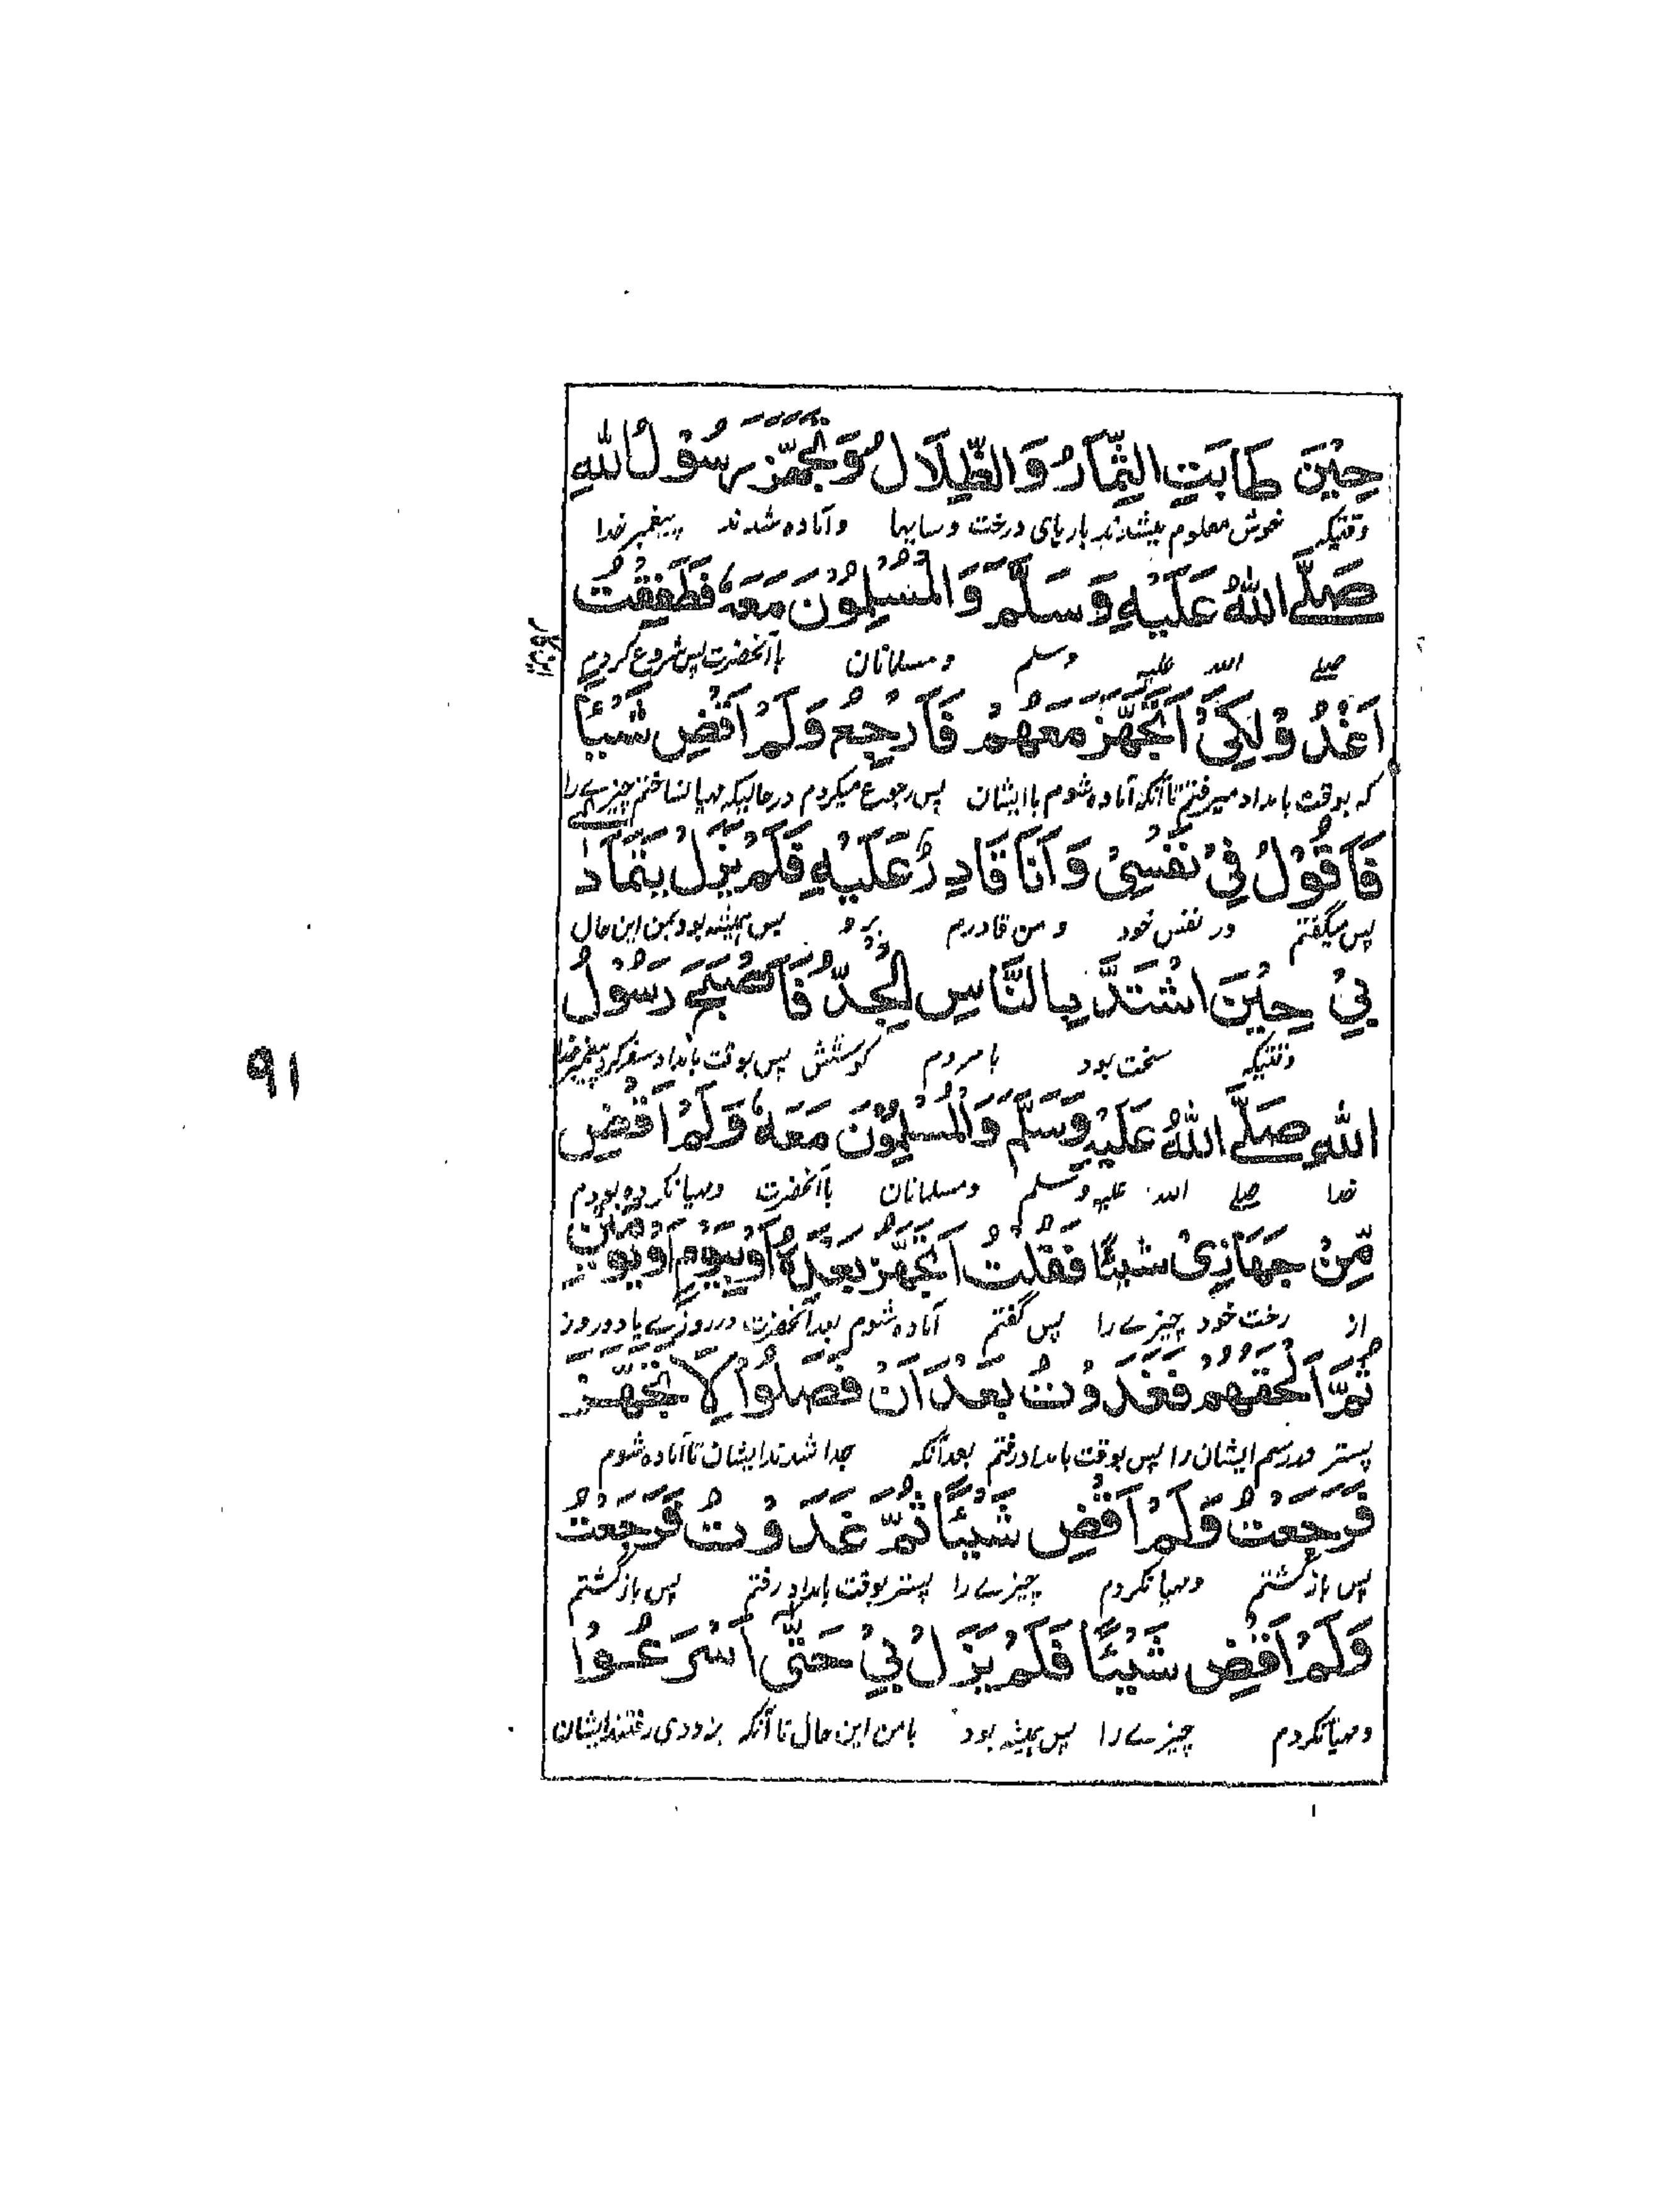 حِيْنَ طَابَتِ الثِّمَارُ وَالظِّلَالُ وَتَجَهَّزَ رَسُوْلُ اللّٰهِ
وقتیکہ خوش معلوم میشدند بارہای درخت وسایہا وآمادہ شدند پیغمبر خدا
صَلَّے اللّٰهُ عَلَيْهِ وَسَلَّمَ وَالْمُسْلِمُوْنَ مَعَهٗ فَطَفِقْتُ
صلے اللہ علیہ وسلم ومسلمانان باآنحضرت پس شروع کردم
اَغْدُوْ لِكَيْ اَتَجَهَّزَ مَعَهُمْ فَاَرْجِعُ وَلَمْ اَقْضِ شَيْئًا
کہ بوقت بامداد میرفتم تاآنکہ آمادہ شوم باایشان پس رجوع میکردم درحالیکہ مہیا نساختم چیزے را
فَاَقُوْلُ فِيْ نَفْسِيْ وَاَنَا قَادِرٌ عَلَيْهِ فَلَمْ يَزَلْ يَتَمَادٰى
پس میگفتم در نفس خود ومن قادرم برو پس ہمیشہ بود بمن این حال
بِيْ حِيْنَ اشْتَدَّ بِالنَّاسِ الْجِدُّ فَاَصْبَحَ رَسُوْلُ
وقتیکہ سخت بود بامردم کوشش پس بوقت بامداد سفر کرد پیغمبر خدا
اللّٰهِ صَلَّے اللّٰهُ عَلَيْهِ وَسَلَّمَ وَالْمُسْلِمُوْنَ مَعَهٗ وَلَمْ اَقْضِ
خدا صلے اللہ علیہ وسلم ومسلمانان باآنحضرت ومہیا نکردہ بودم
مِّنْ جَهَازِيْ شَيْئًا فَقُلْتُ اَتَجَهَّزُ بَعْدَهٗ اَوْ بِيَوْمٍ اَوْ يَوْمَيْنِ
از رخت خود چیزے را پس گفتم آمادہ شوم بعد آنحضرت درروزے یا دوروز
ثُمَّ اَلْحَقُهُمْ فَغَدَوْتُ بَعْدَ اَنْ فَصَلُوْا لِاَ تَجَهَّزَ
پستر مدرسم ایشان را پس بوقت بامداد رفتم بعد آنکہ جدا شدند ایشان تاآمادہ شوم
فَرَجَعْتُ وَلَمْ اَقْضِ شَيْئًا ثُمَّ غَدَوْتُ فَرَجَعْتُ
پس بازگشتم ومہیا نکردم چیزے را پستر بوقت بامداد رفتم پس بازگشتم
وَلَمْ اَقْضِ شَيْئًا فَلَمْ يَزَلْ بِيْ حَتّٰى اَسْرَعُوْا
ومہیا نکردم چیزے را پس ہمیشہ بود بامن این حال تاآنکہ بزودی رفتند ایشان
۹۱